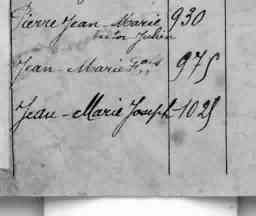 Pierre Jean-Marie 930
Victor Julien
Jean-Marie F.ois 975
Jean-Marie Joseph 1025